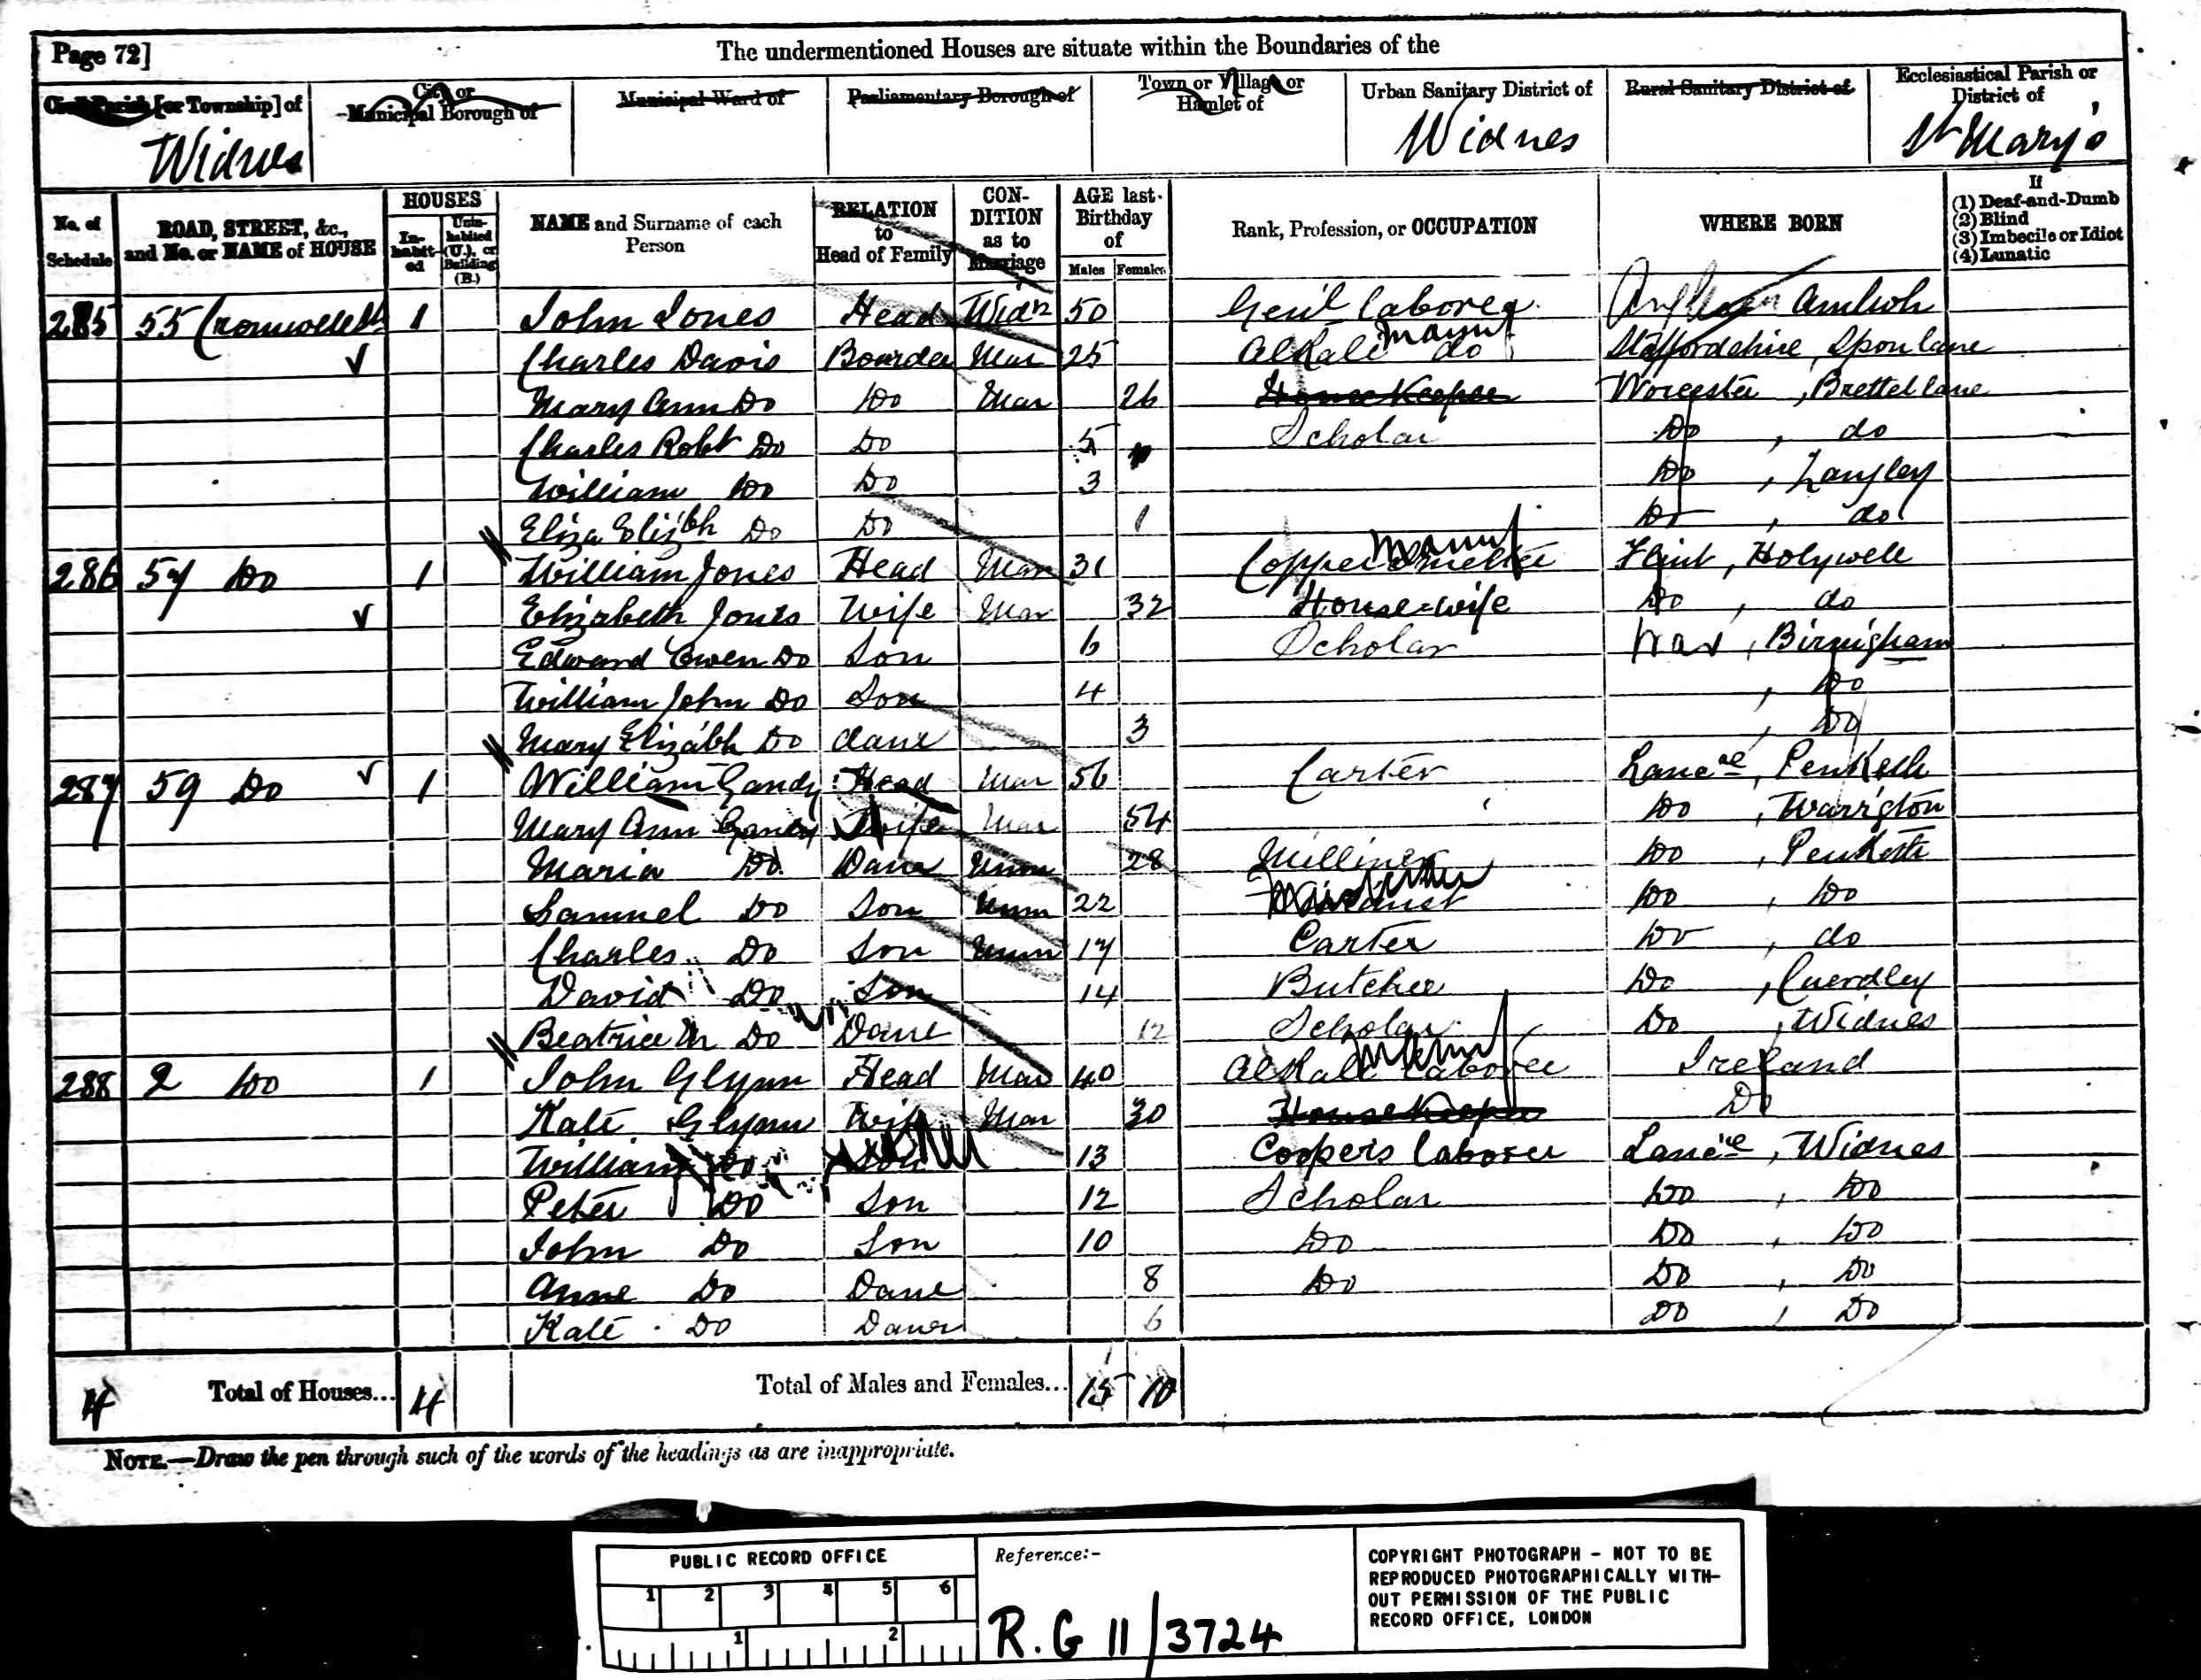 Page 72]
The undermentioned Houses are situate within the Boundaries of the
Civil Parish [or Township] of
City or Municipal Borough of
Municipal Ward of
Parliamentary Borough of
Town or Village or Hamlet of
Urban Sanitary District of
Rural Sanitary District of
Ecclesiastical Parish or District of
Widnes Widnes St Mary's
No. of Schedule
ROAD, STREET, &c., and No. or NAME of HOUSE
HOUSES
In-habit-ed
Unin-habited (U.), or Building (B.)
NAME and Surname of each Person
RELATION to Head of Family
CON-DITION as to Marriage
AGE last Birthday of
Males Females
Rank, Profession, or OCCUPATION
WHERE BORN
If
(1) Deaf-and-Dumb
(2) Blind
(3) Imbecile or Idiot
(4) Lunatic
285 55 Cromwell St 1 John Jones Head Widr 50 Genl Laborer Amlwh
Charles Davis Boarder Mar 25 Alkali Manuf do Staffordshire, Spon lane
Mary Ann Do Do Mar 26 House Keeper Worcester, Brettel lane
Charles Robt Do Do 5 Scholar Do, do
William Do Do 3 Do, Langley
Eliza Elizbh Do Do 1 Do, do
286 57 Do 1 William Jones Head Mar 31 Copper Smelter Manuf Flint, Holywell
Elizabeth Jones Wife Mar 32 House-wife Do, do
Edward Owen Do Son 6 Scholar War, Birmigham
William John Do Son 4 , Do
Mary Elizabh Do daur 3 , Do
287 59 Do 1 William Gandy Head Mar 56 Carter Lancre, Penketh
Mary Ann Gandy Wife Mar 54 Do, Warrigton
Maria Do Daur Unm 28 Milliner Do, Penketh
Samuel Do Son Unm 22 Do, Do
Charles Do Son Unm 17 Carter Do, do
David Do Son 14 Butcher Do, Cuerdley
Beatrice M Do Daur 12 Scholar Do, Widnes
288 2 Do 1 John Glynn Head Mar 40 Alkali Laborer Manuf Ireland
Kate Glynn Wife Mar 30 House Keeper Do
William Do Son 13 Coopers Laborer Lancre, Widnes
Peter Do Son 12 Scholar Do, Do
John Do Son 10 Do Do, Do
Anne Do Daur 8 Do Do, Do
Kate Do Daur 6 Do, Do
4 Total of Houses... 4 Total of Males and Females... 15 10
NOTE.—Draw the pen through such of the words of the headings as are inappropriate.
PUBLIC RECORD OFFICE
1 2 3 4 5 6
1 2
Reference:-
R.G 11/3724
COPYRIGHT PHOTOGRAPH - NOT TO BE
REPRODUCED PHOTOGRAPHICALLY WITH-
OUT PERMISSION OF THE PUBLIC
RECORD OFFICE, LONDON